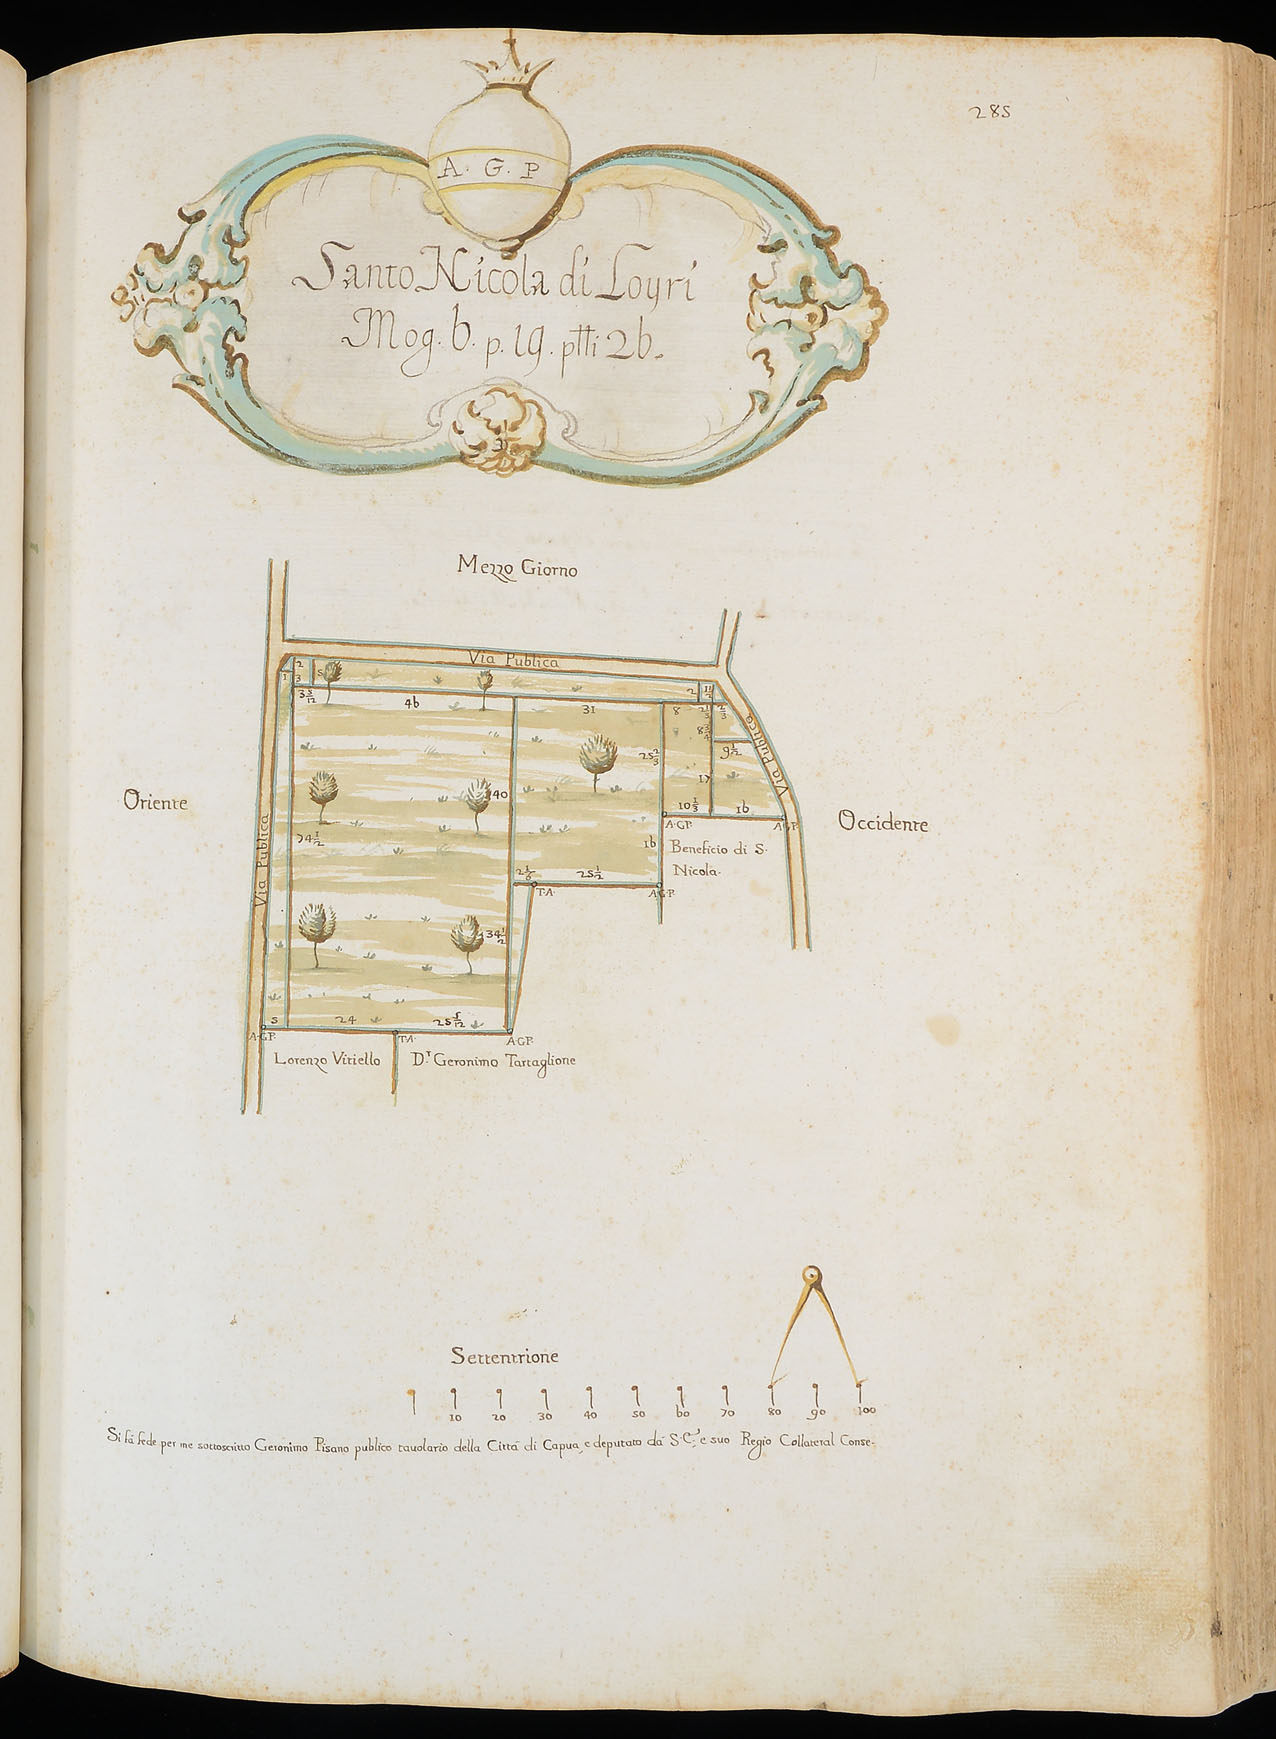 285
A. G. P
Santo Nicola di Loyri
Mog. 6. p. 19. ptti 26.
Mezzo Giorno
Via Publica
2
1
3
5
3 5/12
46
31
2
1 1/2
8
2 1/3
2 2/3
8 3/4
9 1/2
Via Publica
25 2/3
Oriente
40
17
10 1/3
16
A·G·P.
A·G·P.
Occidente
74 1/2
Via Publica
16
Beneficio di S.
Nicola.
2 1/6
25 1/2
T·A·
A·G·P.
34 1/2
5
24
25 5/12
A·G·P.
T·A·
A·G·P.
Lorenzo Vitiello
D.r Geronimo Tartaglione
Settentrione
10 20 30 40 50 60 70 80 90 100
Si fà fede per me sottoscritto Geronimo Pisano publico tavolario della Città di Capua, e deputato dà S. C., e suo Regio Collateral Conse-